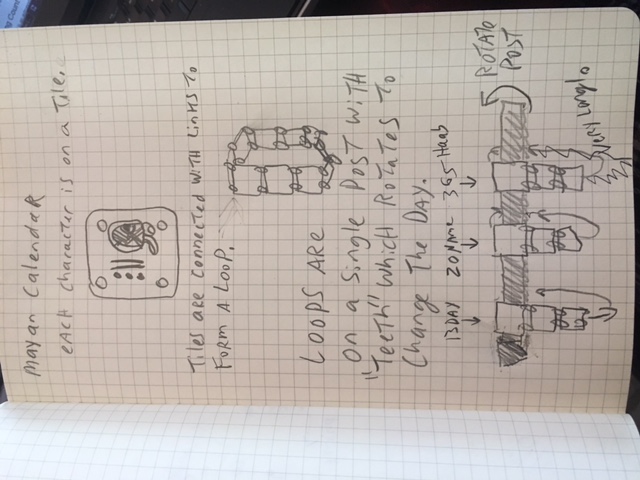 Mayan Calendar
each character is on a Tile.
Tiles are connected with links to
Form a loop.
LOOPS ARE
on a Single Post with
"Teeth" which Rotates to
Change The DAY.
13DAY 20Name 365 Haab
ROTATE
POST
Very Long